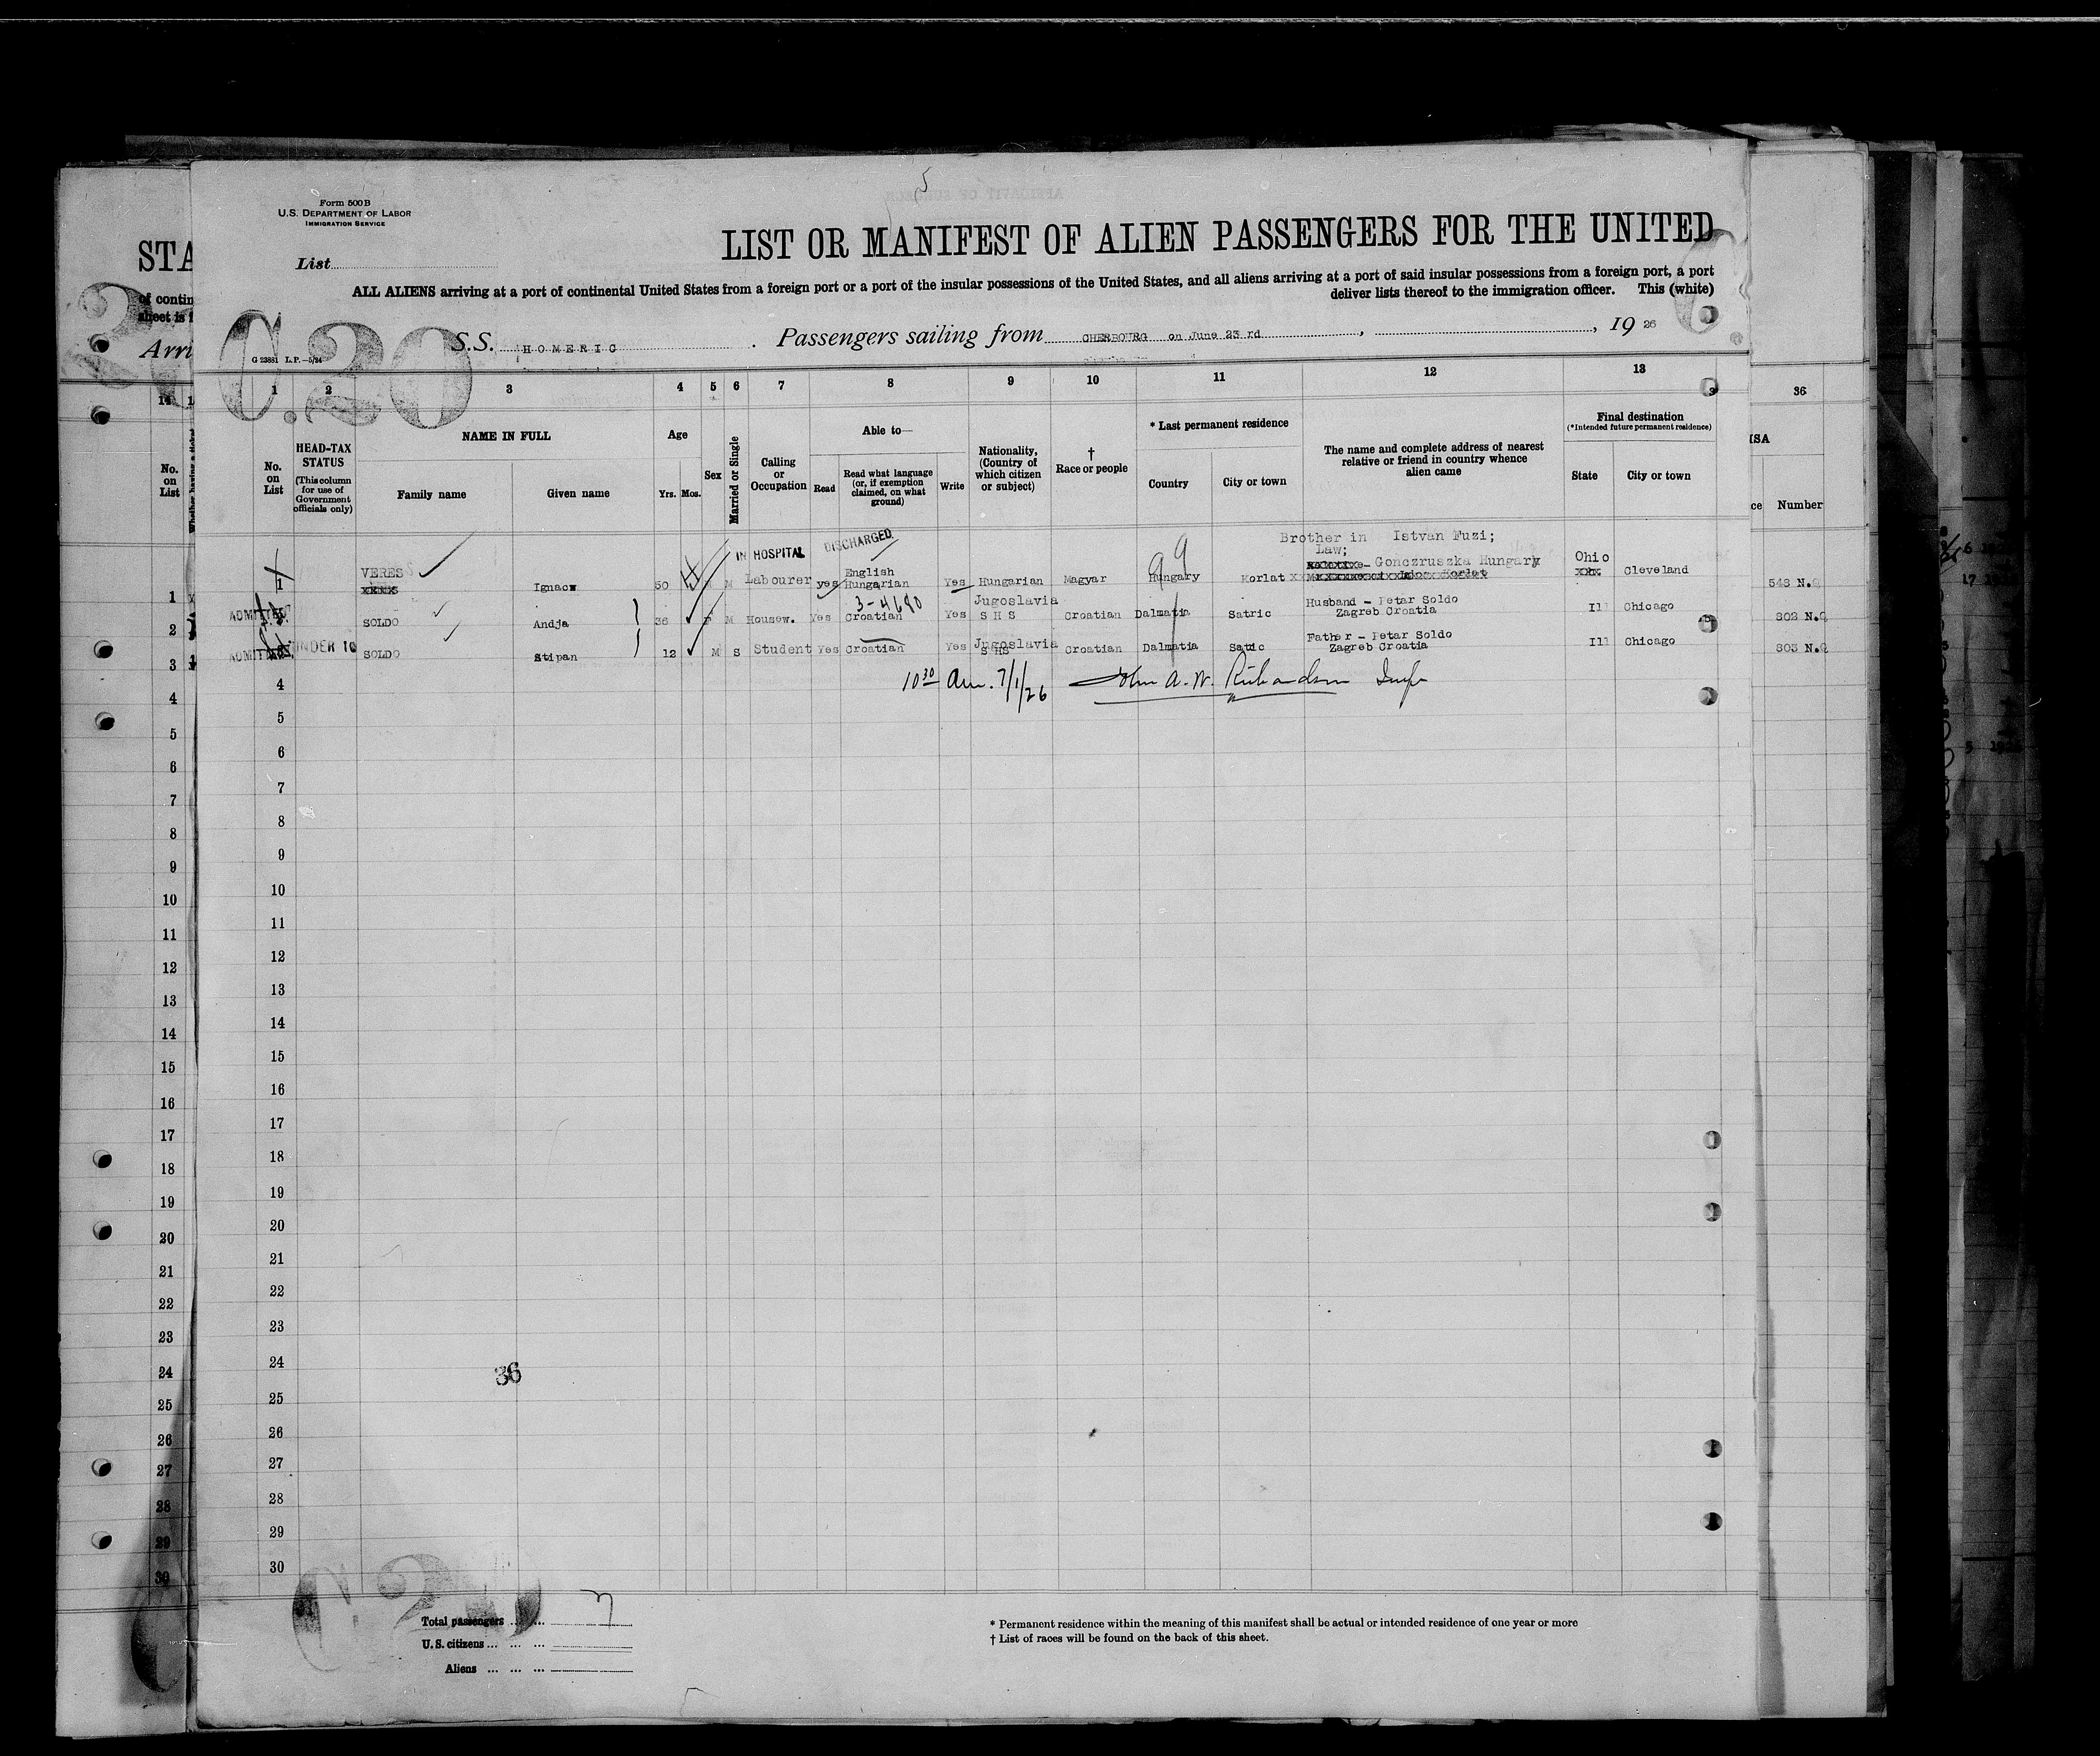 5
Form 500 B
U.S. DEPARTMENT OF LABOR
IMMIGRATION SERVICE
STA
LIST OR MANIFEST OF ALIEN PASSENGERS FOR THE UNITED
List
ALL ALIENS arriving at a port of continental United States from a foreign port or a port of the insular possessions of the United States, and all aliens arriving at a port of said insular possessions from a foreign port, a port
deliver lists thereof to the immigration officer. This (white)
of contin
sheet is
Arri
C.20
S.S. HOMERIC . Passengers sailing from CHERBOURG on June 23 rd , , 19 26
G 23881 L.P.—5/24
1 2 3 4 5 6 7 8 9 10 11 12 13 36
No. on List
Whether having a ticket
No. on List
HEAD-TAX STATUS
(This column for use of Government officials only)
NAME IN FULL
Family name
Given name
Age
Yrs. Mos.
Sex
Married or Single
Calling or Occupation
Able to—
Read
Read what language (or, if exemption claimed, on what ground)
Write
Nationality, (Country of which citizen or subject)
†
Race or people
* Last permanent residence
Country
City or town
The name and complete address of nearest relative or friend in country whence alien came
Final destination
(*Intended future permanent residence)
State
City or town
ISA
ce Number
IN HOSPITAL DISCHARGED
Brother in Istvan Fuzi;
Law;
1 VERES Ignacz 50 M Labourer yes English Hungarian Yes Hungarian Magyar Hungary Korlat Gonczruszka Hungary Ohio Cleveland 548 N.Q
3-4680
ADMITTED SOLDO Andja 36 F M Housew. Yes Croatian Yes Jugoslavia S H S Croatian Dalmatia Satric Husband - Petar Soldo Zagreb Croatia Ill Chicago 802 N.Q
ADMITTED UNDER 16 SOLDO Stipan 12 M S Student Yes Croatian Yes Jugoslavia S HS Croatian Dalmatia Satric Father - Petar Soldo Zagreb Croatia Ill Chicago 803 N.Q
99
10 30 Am. 7/1/26 John A. W. Richardson Insp
1
2
3
4
5
6
7
8
9
10
11
12
13
14
15
16
17
18
19
20
21
22
23
24
25
26
27
28
29
30
4
5
6
7
8
9
10
11
12
13
14
15
16
17
18
19
20
21
22
23
24
25
26
27
28
29
30
36
Total passengers ... ...
U.S. citizens ... ... ...
Aliens ... ... ...
* Permanent residence within the meaning of this manifest shall be actual or intended residence of one year or more
† List of races will be found on the back of this sheet.